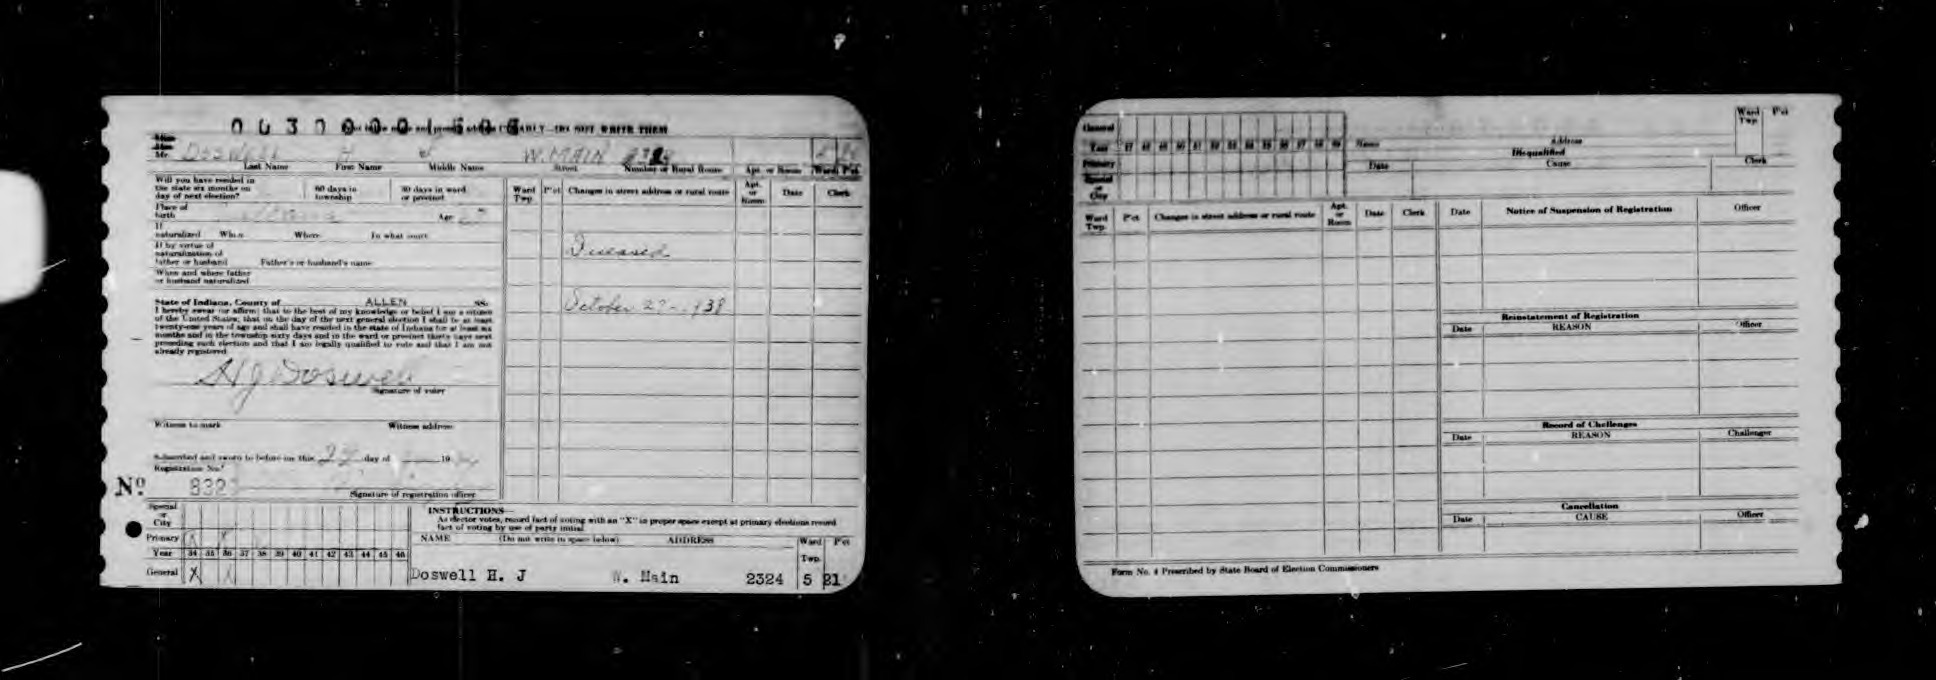 LY—DO NOT WRITE THEM
Miss
Mrs.
Mr. Doswell H J W. MAIN
Last Name First Name Middle Name Street Number or Rural Route Apt. or Room Ward P'ct
Will you have resided in
the state six months on
day of next election?
60 days in
township
30 days in ward
or precinct
Place of
birth
Age
If
naturalized When Where In what court
If by virtue of
naturalization of
father or husband Father's or husband's name
When and where father
or husband naturalized
State of Indiana, County of ALLEN ss.
I hereby swear (or affirm) that to the best of my knowledge or belief I am a citizen
of the United States; that on the day of the next general election I shall be at least
twenty-one years of age and shall have resided in the state of Indiana for at least six
months and in the township sixty days and in the ward or precinct thirty days next
preceding such election and that I am legally qualified to vote and that I am not
already registered
H J Doswell
Signature of voter
Witness to mark Witness address
Subscribed and sworn to before me this day of 19
Registration No.
No. 832
Signature of registration officer
Ward
Twp. P'ct Changes in street address or rural route Apt.
or
Room Date Clerk
Diseased
October
Special
or
City
Primary
Year 34 35 36 37 38 39 40 41 42 43 44 45 46
General X X
INSTRUCTIONS—
As elector votes, record fact of voting with an "X" in proper space except at primary elections record
fact of voting by use of party initial.
NAME (Do not write in space below) ADDRESS Ward
Twp. P'ct
Doswell H. J W. Main 2324 5 21
General
Year 47 48 49 50 51 52 53 54 55 56 57 58 59
Primary
Special
or
City
Name Address Ward
Twp. P'ct
Disqualified
Date Cause Clerk
Ward
Twp. P'ct Changes in street address or rural route Apt.
or
Room Date Clerk
Date Notice of Suspension of Registration Officer
Reinstatement of Registration
Date REASON Officer
Record of Challenges
Date REASON Challenger
Cancellation
Date CAUSE Officer
Form No. 4 Prescribed by State Board of Election Commissioners